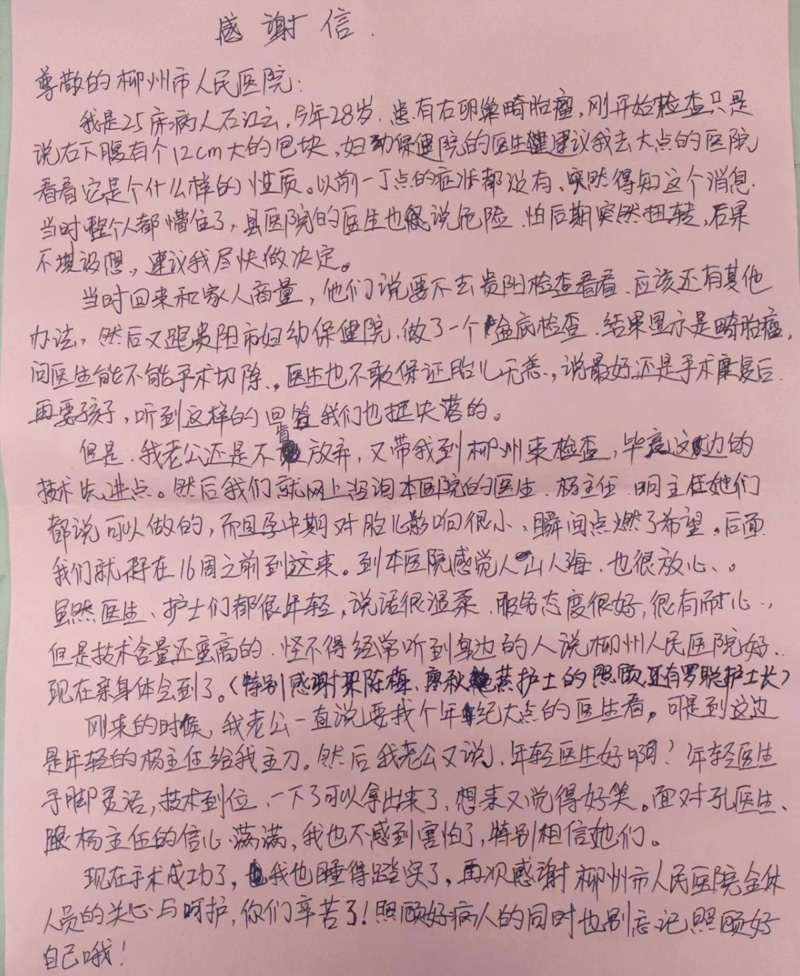 感谢信.
尊敬的柳州市人民医院:
我是25床病人石边云,今年28岁,患有右卵巢畸胎瘤,刚开始检查只是
说右下腹有个12cm大的包块,妇幼保健院的医生建议我去大点的医院
看看它是个什么样的性质。以前一丁点的症状都没有,突然得知这个消息.
当时整个人都懵住了,县医院的医生也说危险.怕后期突然扭转,后果
不堪设想,建议我尽快做决定。
当时回来和家人商量,他们说要不去贵阳检查看看.应该还有其他
办法,然后又跑贵阳市妇幼保健院,做了一个盆底检查.结果显示是畸胎瘤,
问医生能不能手术切除、医生也不敢保证胎儿无恙,说最好还是手术康复后
再要孩子,听到这样的回答我们也挺失落的。
但是.我老公还是不肯放弃,又带我到柳州来检查,毕竟这边的
技术先进点。然后我们就网上咨询本医院的医生.杨主任.明主任她们
都说可以做的,而且孕中期对胎儿影响很小、瞬间点燃了希望。后面
我们就将在16周之前到这来。到本医院感觉人山人海.也很放心、。
虽然医生、护士们都很年轻,说话很温柔.服务态度很好,很有耐心.,
但是技术含量还蛮高的.怪不得经常听到身边的人说柳州人民医院好.
现在亲身体会到了。(特别感谢梁陈梅、廖秋燕护士的照顾,还有罗聪护士长)
刚来的时候,我老公一直说要找个年纪大点的医生看。可是到这边
是年轻的杨主任给我主刀。然后我老公又说,年轻医生好啊!年轻医生
手脚灵活,技术到位、一下子可以拿出来了,想来又觉得好笑。面对孔医生、
跟杨主任的信心满满,我也不感到害怕了,特别相信她们。
现在手术成功了,我也睡得踏实了,再次感谢柳州市人民医院全体
人员的关心与呵护,你们辛苦了!照顾好病人的同时也别忘记照顾好
自己哦!